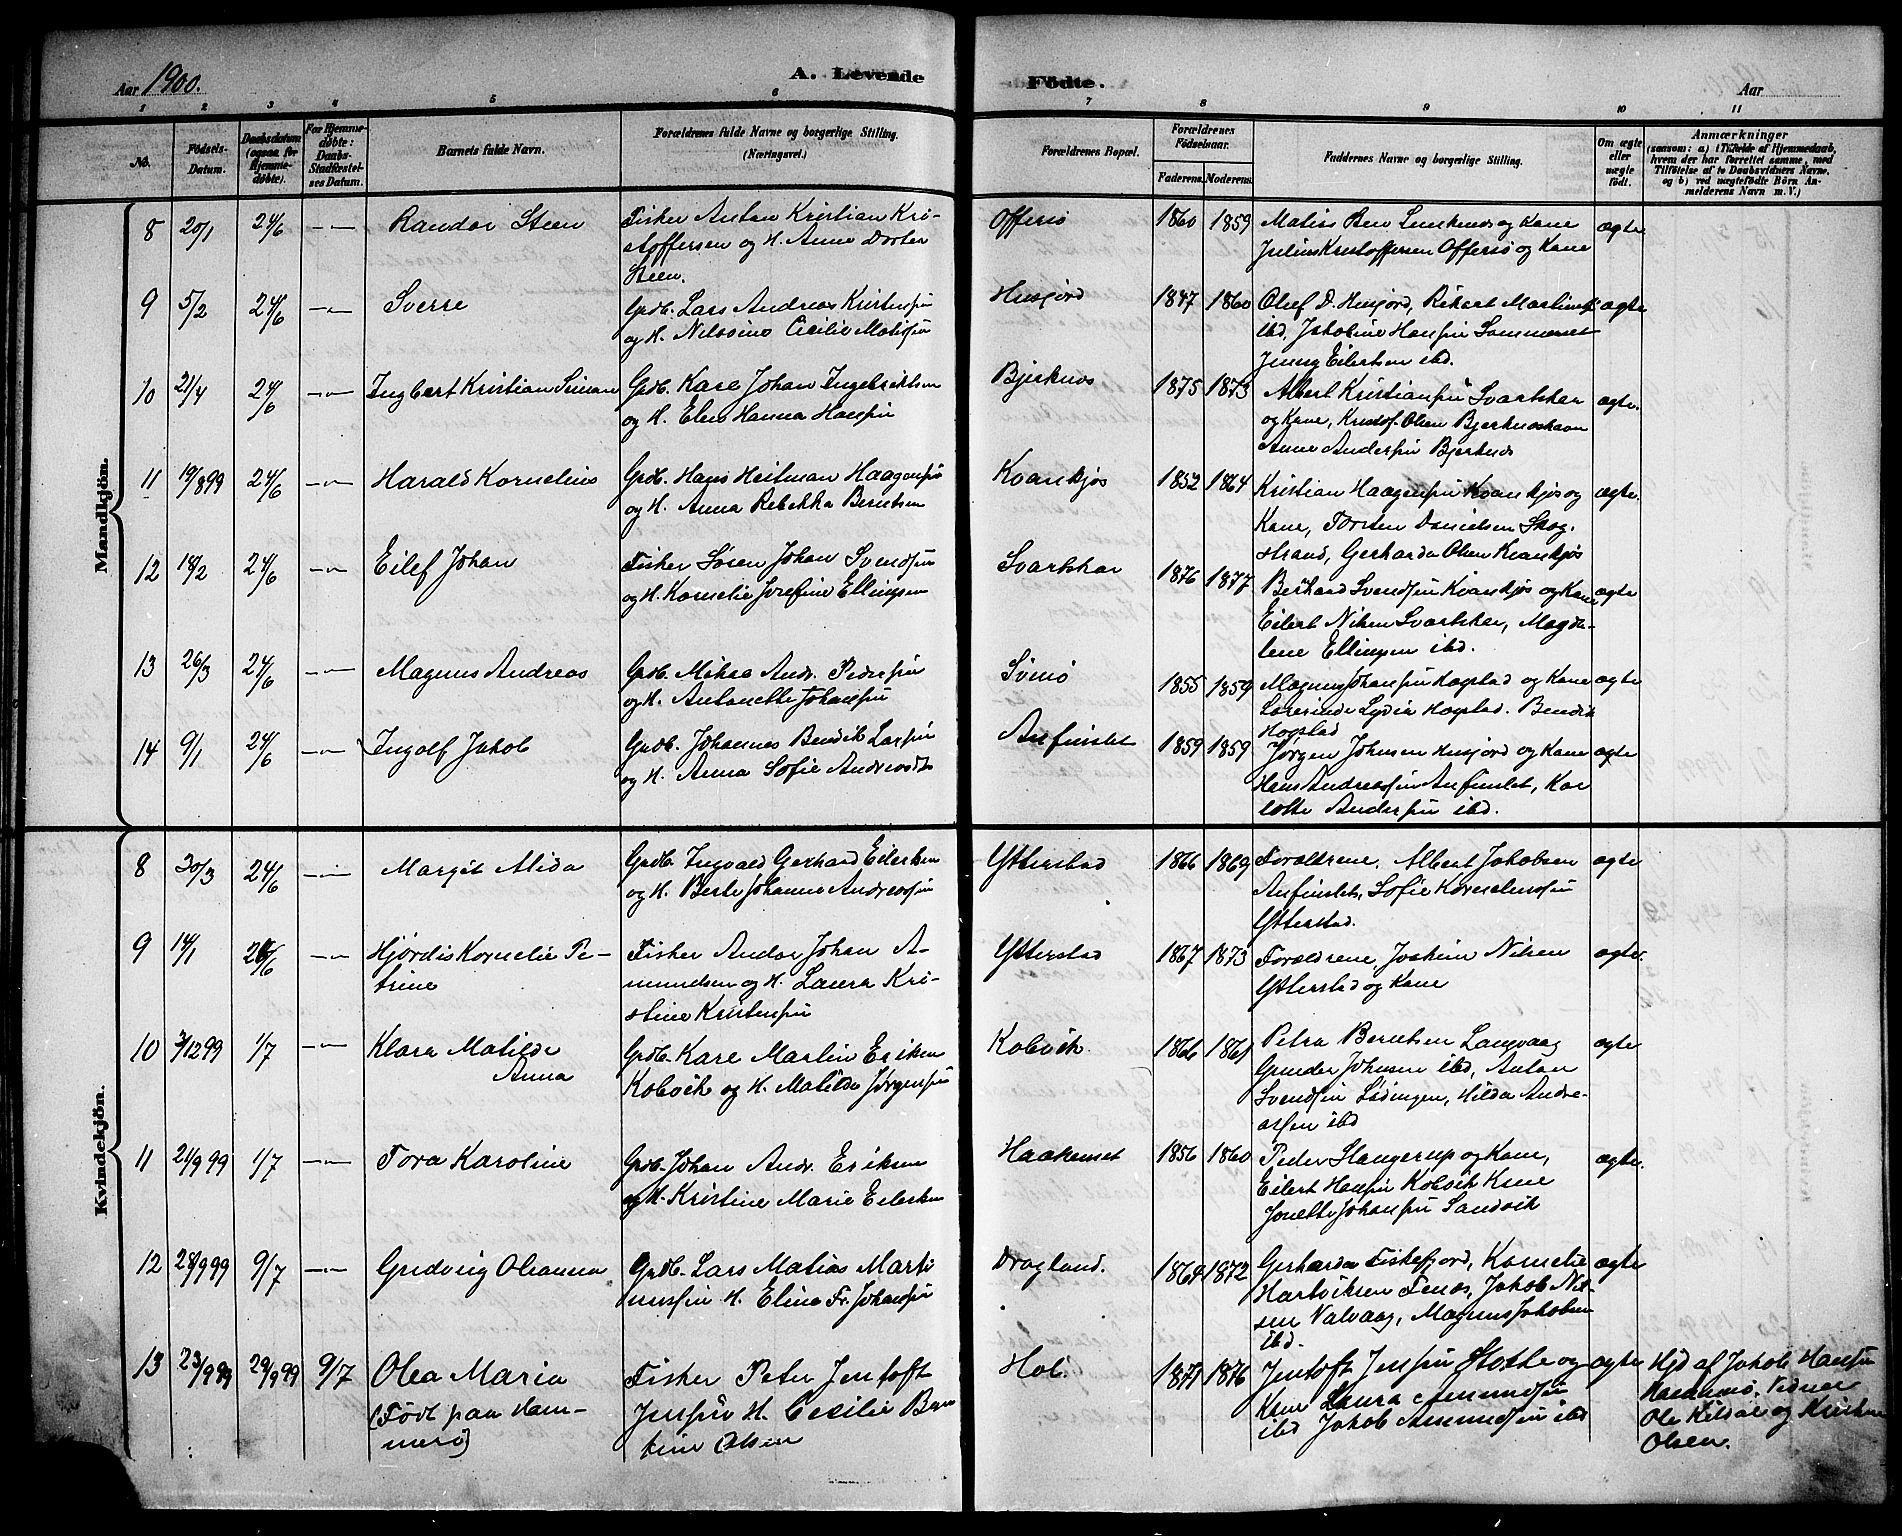 Aar 1900.
A. Levende Fødte.
Aar
1 2 3 4 5 6 7 8 9 10 11
No.
Fødsels-Datum.
Daabsdatum (ogsaa for Hjemmedøbte).
For Hjemmedøbte: Daabs-Stadfæstelses Datum.
Barnets fulde Navn.
Forældrenes fulde Navne og borgerlige Stilling. (Næringsvei.)
Forældrenes Bopæl.
Forældrenes Fødselsaar. Faderens. Moderens.
Faddernes Navne og borgerlige Stilling.
Om ægte eller uægte født.
Anmærkninger
(saasom: a) i Tilfælde af Hjemmedaab, hvem der har forrettet samme, med Tilføielse af to Daabsvidners Navne, og b) ved uægtefødte Börn Anmelderens Navn m. V.)
Mandkjön.
8 20/1 24/6 -"- Randor Steen
Fisker Anton Kristian Kri-
stoffersen og H. Anne Dorter
Steen.
Offersø 1860 1859
Matias Ben og Kone
Julius Kristoffersen Offersø og Kone
ægte
9 5/2 24/6 -"- Sverre
Grdb. Lars Andreas Kristensen
og H. Nilssine Cecilie Matisen
Husjord 1847 1860
Olef D. Husjord, Rikart Martinsen
ibd, Jakobine Hansen Sommerset
Jenny Eilertsen ibd.
ægte
10 21/4 24/6 -"- Ingbert Kristian Siman
Grdb. Kare Johan Ingebriktsen
og H. Elen Hanna Hansen
Bjerknes 1875 1873
Albert Kristiansen Svartskar
og Kone, Kristof. Olsen Bjerkneshavn
Anne Andersen Bjerknes
ægte.
11 19/8 99 24/6 -"- Harald Kornelius
Grdb. Hans Heitman Haagensen
og H. Anna Rebekka Berntsen
Kvankjøs 1852 1864
Kristian Haagensen Kvankjøs og
Kone, Torsten Danielsen Skog-
strand, Gerharda Olsen Kvankjøs
ægte.
12 18/2 24/6 -"- Eilef Johan
Fisker Søren Johan Svendsen
og H. Kornelie Josefine Ellingsen
Svartskar 1876 1877
Berhard Svendsen Kvankjøs og Kone
Eilert Nilsen Svartskar, Magda-
lene Ellingsen ibd.
ægte
13 26/3 24/6 -"- Magnus Andreas
Grdb. Mikae Andr. Pedersen
og H. Antonette Johansen
Svinø 1855 1859
Magnus Johansen Hogstad og Kone
Lovrinde Lydia Hogstad. Bendik
Hogstad
ægte
14 9/1 24/6 -"- Ingolf Jakob
Grdb. Johannes Bendik Larsen
og H. Anna Sofie Andreasdt
Anfinslet 1859 1859
Jørgen Johnsen Husjord og Kone
Hans Andreassen Anfinslet, Kar
lotte Andersen ibd.
ægte
Kvindekjön.
8 30/3 24/6 -"- Margit Alida
Grdb. Ingvald Gerhard Eilertsen
og H. Berte Johanne Andreassen
Ytterstad 1866 1869
Forældrene, Albert Jakobsen
Anfinslet, Sofie Korneliussen
Ytterstad.
ægte
9 14/1 24/6 -"- Hjørdis Kornelie Pe-
trine
Fisker Andor Johan A-
mundsen og H. Laura Kri-
stine Kristensen
Ytterstad 1867 1873
Forældrene, Joakim Nilsen
Ytterstad og Kone
ægte.
10 3/12 99 1/7 -"- Klara Matilde
Anna
Grdb. Kare Martin Eriksen
Kobvik og H. Matilde Jørgensen
Kobvik 1866 1861
Petra Berntsen Langvaag
Gunder Johnsen ibd, Anton
Svendsen Lødingen, Hilda Andre-
assen ibd
ægte
11 21/9 99 1/7 -"- Tora Karoline
Grdb. Johan Andr. Eriksen
og H. Kristine Marie Eilertsen
Haakenset 1856 1860
Peder Slangerup og Kone,
Eilert Hansen Kobvik Kone
Jonette Johansen Sandvik
ægte.
12 28/9 99 9/7 -"- Gudvig Oleanna
Grdb. Lars Matias Marti
nussen H. Eline Fr. Johansen
Dragland. 1864 1872
Gerharda Fiskefjord, Kornelie
Hartviksen Fenes, Jakob Nil-
sen Valvaag, Magnus Jakobsen
ibd.
ægte
13 23/9 99 29/9 99 9/7 Olea Maria
(Født paa Ham-
merø)
Fisker Peter Jentoft
Jensen H. Cecilie Bern
tine Olsen
Hol. 1871 1876
Jentoft Jensen Stokke og
Kone Laura Amundsen
ibd Jakob Amundsen ibd
ægte
Hjd af Jakob Hansen
Hammerø. Vidner
Ole Kildal og Kristine
Olsen.